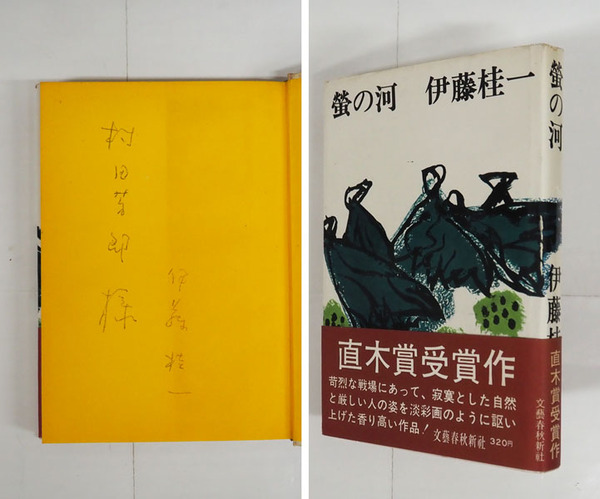 村田芳郎様
伊藤桂一
螢の河 伊藤桂一
直木賞受賞作
苛烈な戦場にあって、寂寞とした自然
と厳しい人の姿を淡彩画のように謳い
上げた香り高い作品! 文藝春秋新社 320円
螢の河 伊藤桂
直木賞受賞作
文藝春秋新社